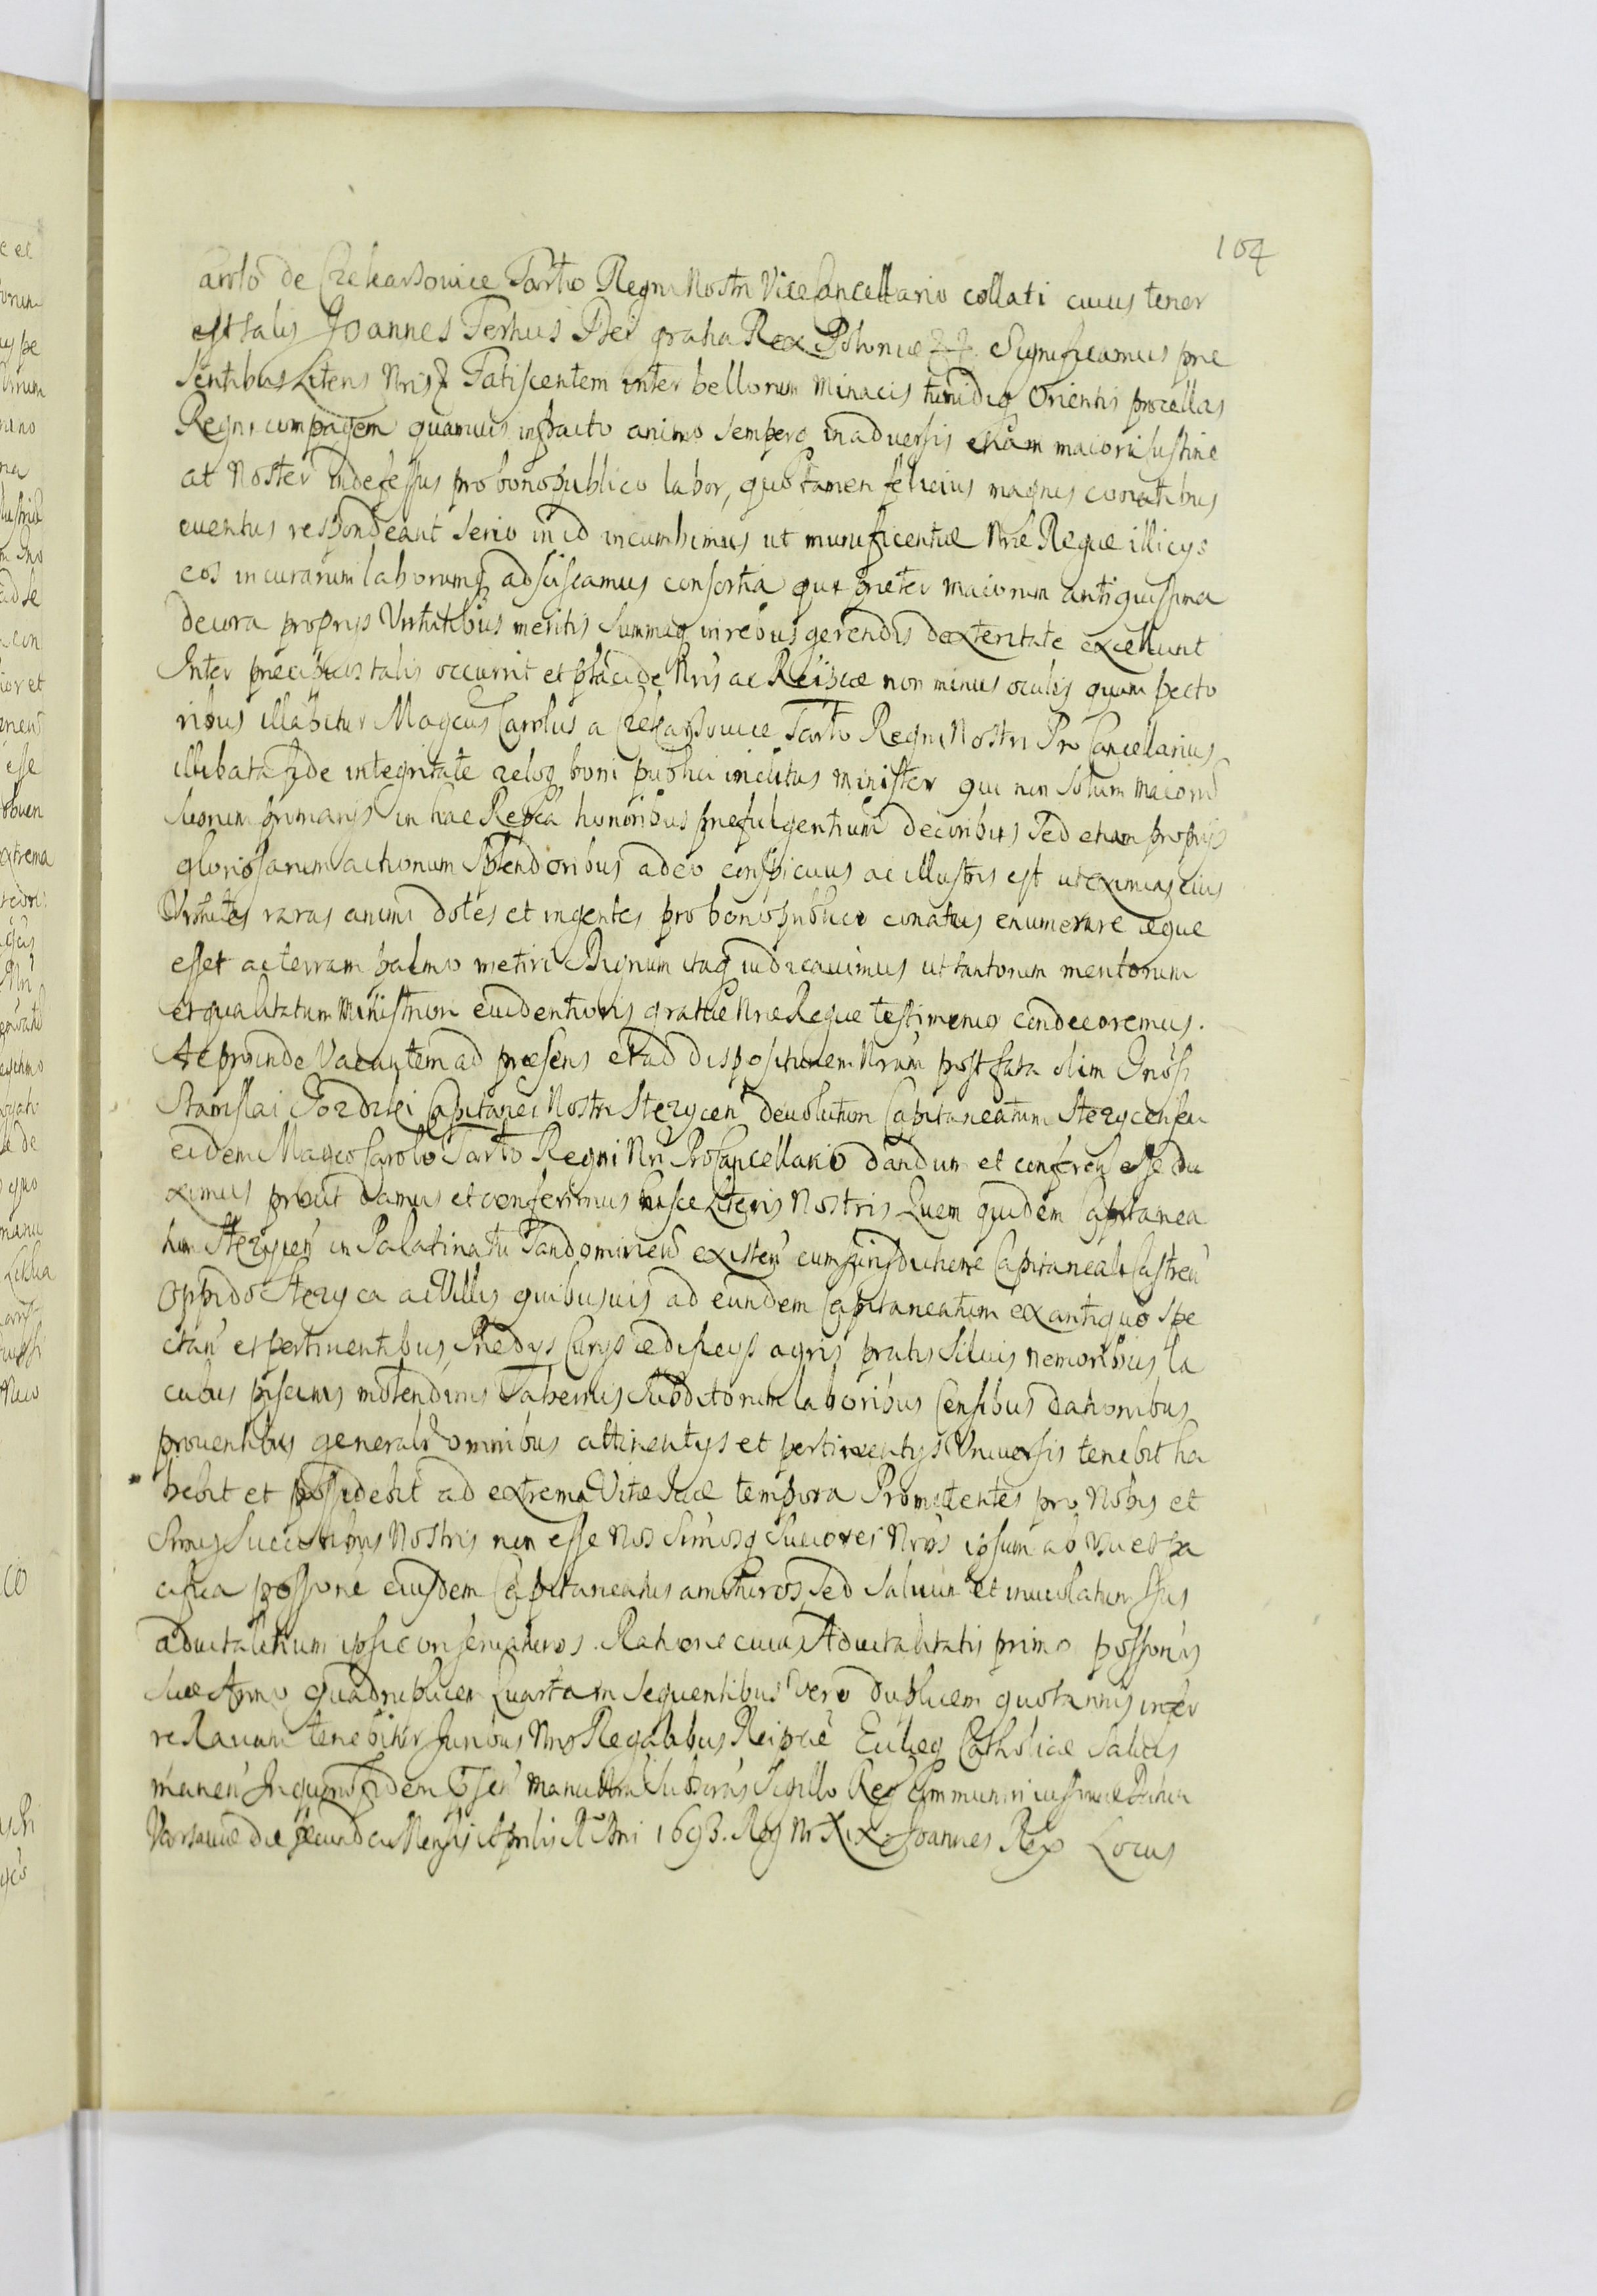 104
arolo de Czekarsowice Tarło Regni Nostri ViceCancellario collati cuius tenor
est talis Joannes Tertius Dei gratia Rex Poloniæ Significamus præ
sentibus Literis Nris Fatiscentem inter bellorum minacis tumidiq Orientis procellas
Regni compagem quamuis infracto animo semperq in aduersis etiam maiori sustine
at Noster indefessus pro bono publico labor, quo tamen felicius magnis conatibus
euentus respondeant serio in id incumbimus ut munificentiæ Nræ Regiæ illicys
eos in curarum laborumq adsciscamus consortia qui præter maiorum antiquissima
decora proprys Virtutibus meritis summaq in rebus gerendis dexteritate excellunt
Inter præcipuos talis occurrit et placide Nris ac Reipcæ non minus oculis quam pecto
ribus illabitur Magcus Carolus a Czekarsowice Tarło Regni Nostri ProCancellarius
illibata fide integritate zeloq boni publici inclitus minister qui non solum maiorũ
suorum primarys in hac Repca honoribus præfulgentium decoribus sed etiam proprys
gloriosarum actionum splendoribus adeo conspicuus ac illustris est ut eximias eius
Virtutes raras animi dotes et ingentes pro bono publico conatus enumerare æque
esset ac terram palmo metiri Dignum itaq iudicauimus ut tantorum meritorum
et qualitatum Ministrum euidentioris gratiæ Nræ Regiæ testimonio condecoremus.
Ac proinde Vacantem ad præsens et ad dispositionem Nram post fata olim Gnosi
Stanislai Capitanei Nostri Stezycen deuolutum Capitaneatum Stezycensem
eidem Magco Carolo Tarło Regni Nri ProCancellario dandum et conferen esse du
ximus prout damus et conferimus hisce Literis Nostris Quem quidem Capitanea
tum Stezycen in Palatinatu Sandomirien existen cum jurisdictione Capitaneali Castren
Oppido Stezyca ac Villis quibusuis ad eundem Capitaneatum ex antiquo spe
ctan et pertinentibus, Prædys Curys ædificys agris pratis siluis nemoribus la
cubus piscinis molendinis Tabernis subditorum laboribus Censibus dationibus
prouentibus generalr omnibus attinentys et pertinentys Vniuersis tenebit ha
bebit et possidebit ad extrema Vitæ suæ tempora Promittentes pro Nobis et
Srmis Succoribus Nostris non esse Nos Srmosq Succores Nros ipsum ab Vsu et pa
cifica possione eiusdem Capitaneatus amoturos, sed saluum et inuiolatum Ius
aduitalitium ipsi conseruaturos. Ratione cuius Aduitalitatis primo possonis
suæ Anno quadruplicem Quartam sequentibus vero duplicem quotannis infer
re Rauam tenebitur Juribus Nris Regalibus Reipcæ Ecclieq Catholicæ saluis
manen In quorum fidem psen manu Nra subscras Sigillo Regni communiri iussimus Datum
Varsauiæ die secunda Mensis Aprilis A Dni 1693. Reg Nri XIX Joannes Rex Locus